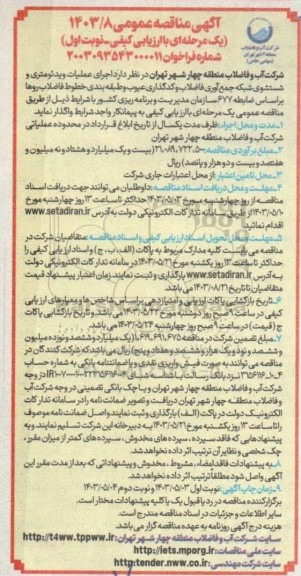 آگهی مناقصه عمومی ۱۴۰۳/۸
(یک مرحله‌ای با ارزیابی کیفی - نوبت اول)
شماره فراخوان ۲۰۰۳۰۹۳۵۴۳۰۰۰۰۱۱
شرکت آب و فاضلاب منطقه چهار شهر تهران در نظر دارد اجرای عملیات ویدئومتری و
شستشوی شبکه جمع‌آوری فاضلاب و کدگذاری عیوب وطبقه بندی خطوط فاضلاب روها
براساس ضابطه ۶۷۷ سازمان مدیریت و برنامه ریزی کشور با شرایط ذیل از طریق
مناقصه عمومی یک مرحله‌ای با ارزیابی کیفی به پیمانکار واجد شرایط واگذار نماید.
۱- مدت و محل اجرا: ظرف مدت یکسال از تاریخ ابلاغ قرارداد در محدوده عملیاتی
شرکت آب و فاضلاب منطقه چهار شهر تهران
۲- مبلغ برآوردی مناقصه: ۲۱,۰۸۹,۷۲۲,۵۰۰ (بیست و یک میلیارد و هشتاد و نه میلیون و
هفتصد و بیست و دو هزار و پانصد) ریال
۳- محل تامین اعتبار: از محل اعتبارات جاری شرکت
۴- مهلت و محل دریافت اسناد مناقصه: داوطلبان می‌توانند جهت دریافت اسناد
مناقصه از روز چهارشنبه مورخ ۱۴۰۳/۰۵/۰۳ حداکثر تا ساعت ۱۳ روز چهارشنبه مورخ
۱۴۰۳/۰۵/۱۰ از طریق سامانه تدارکات الکترونیکی دولت به آدرس www.setadiran.ir
اقدام نمایند
۵- مهلت و محل تحویل اسناد ارزیابی کیفی و اسناد مناقصه: متقاضیان شرکت در
مناقصه می‌بایست کلیه مدارک مربوط به پاکات (الف، ب، ج) و اسناد ارزیابی کیفی را
حداکثر تا ساعت ۱۳ روز یکشنبه مورخ ۱۴۰۳/۰۵/۲۱ در سامانه تدارکات الکترونیکی دولت
به آدرس www.setadiran.ir بارگذاری و ثبت نمایند. زمان اعتبار پیشنهاد قیمت
متقاضیان تا تاریخ ۱۴۰۳/۰۸/۲۱ می باشد.
۶- تاریخ بازگشایی پاکات ارزیابی و امتیازدهی براساس شاخص ها و معیارهای ارزیابی
کیفی در ساعت ۹ صبح روز دوشنبه مورخ ۱۴۰۳/۰۵/۲۲ می باشد و تاریخ بازگشایی پاکات
ج (قیمت) در ساعت ۹ صبح روز چهارشنبه ۱۴۰۳/۰۵/۲۴ می باشد.
۷- مبلغ تضمین شرکت در مناقصه ۱,۶۱۹,۶۹۱,۶۷۵ (یک میلیارد و ششصد و نوزده میلیون
و ششصد و نود و یک هزار و ششصد و هفتاد و پنج) ریال می باشد که شرکت کنندگان در
مناقصه می توانند به صورت فیش واریزی نقدی و یا ضمانتنامه بانکی به شماره حساب
شرکت آب و فاضلاب منطقه چهار شهر تهران و یا چک بانکی تضمینی در وجه شرکت آب
و فاضلاب منطقه چهار شهر تهران دریافت و تصویر ضمانت نامه را در سامانه تدارکات
الکترونیک دولت در پاکت (الف) بارگذاری و ثبت نمایند و اصل ضمانت نامه موصوف
را تا ساعت ۱۳ روز یکشنبه مورخ ۱۴۰۳/۰۵/۲۱ به دبیرخانه این شرکت تسلیم نمایند، و به
پیشنهادهایی که فاقد سپرده، سپرده‌های مخدوش، سپرده‌های کمتر از میزان مقرر،
چک شخصی و نظایر آن ترتیب اثر داده نخواهد شد.
۸- به پیشنهادات فاقد امضاء، مشروط، مخدوش و پیشنهاداتی که بعد از مدت مقرر این
آگهی واصل شود مطلقا ترتیب اثر داده نخواهد شد.
۹- زمان چاپ آگهی: نوبت اول ۱۴۰۳/۰۵/۰۳ و نوبت دوم ۱۴۰۳/۰۵/۰۴
برگزارکننده مناقصه در رد یا قبول یک یا کلیه پیشنهادات مختار است.
سایر اطلاعات و جزئیات در اسناد مناقصه مندرج است.
هزینه درج آگهی روزنامه به عهده مناقصه گزار می باشد.
سایت شرکت آب و فاضلاب منطقه چهار شهر تهران: http://t4ww.tppww.ir
سایت ملی مناقصات: http://iets.mporg.ir
سایت شرکت مهندسی: http:tender.nww.co.ir